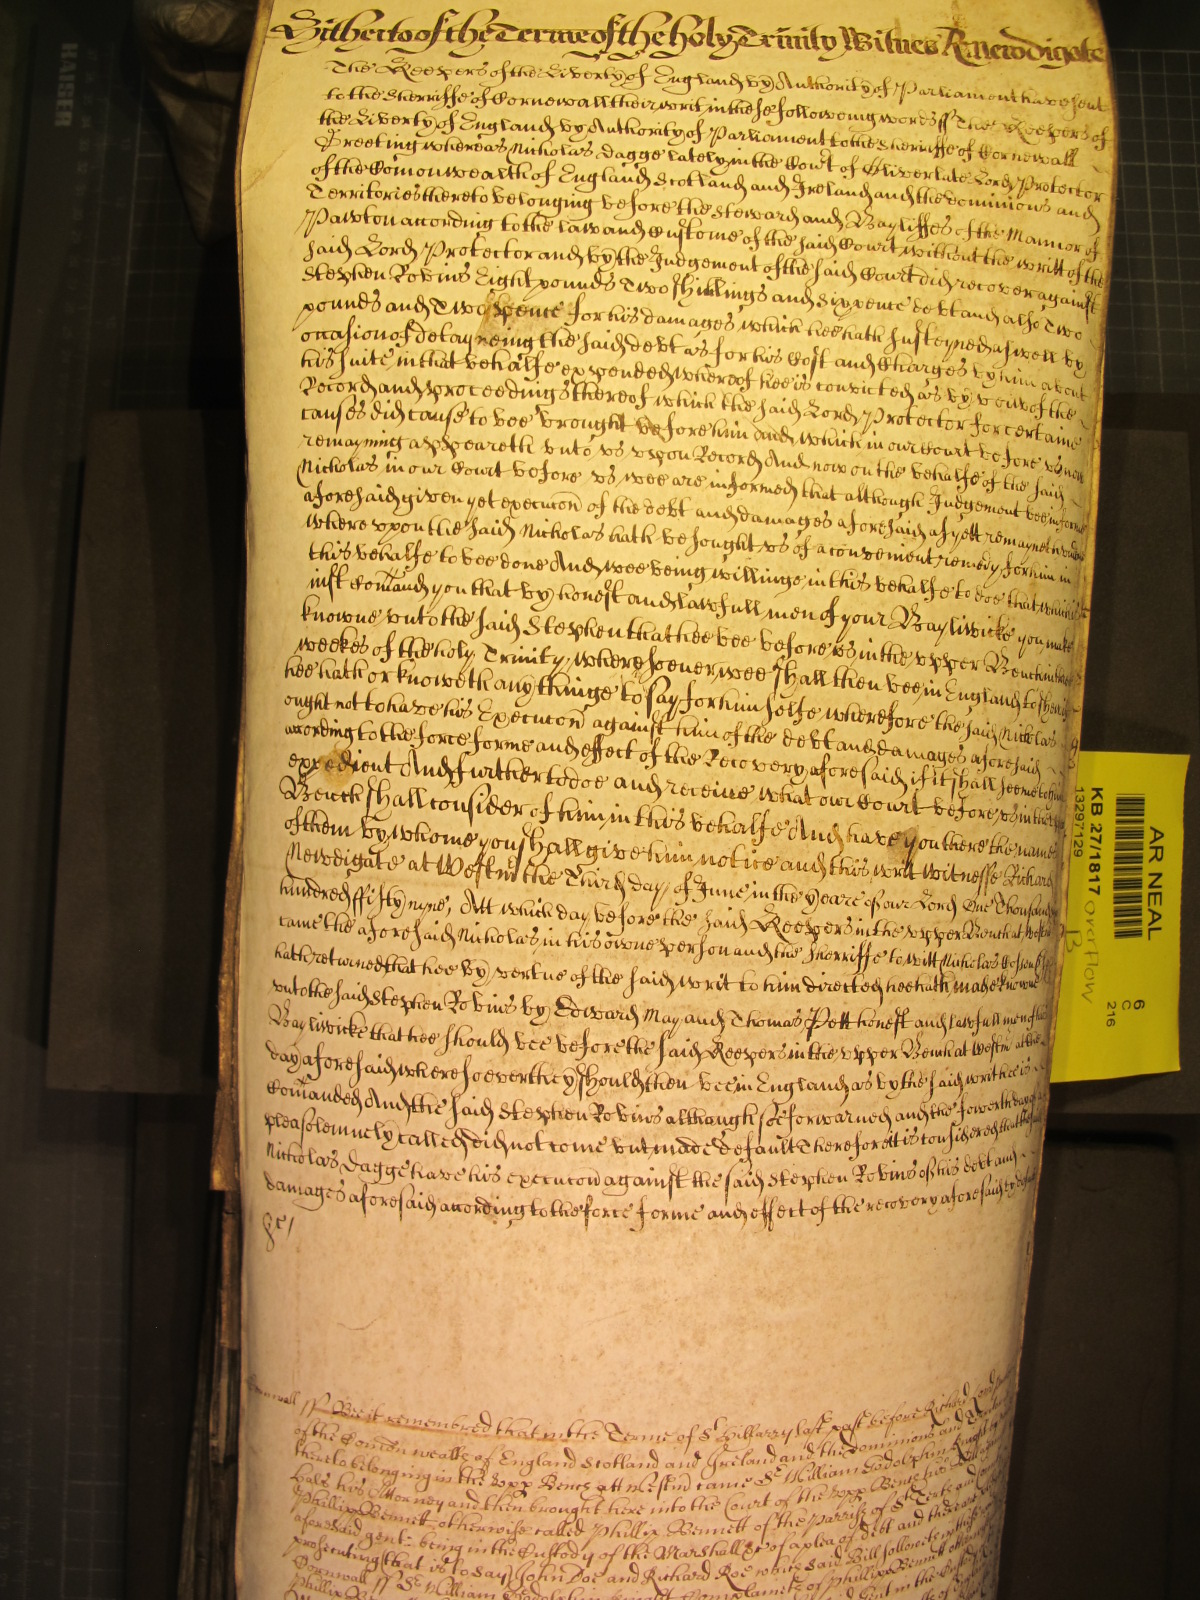 Hitherto of the Terme of the holy Trinity Witnes R: newdigate
The Keepers of the Liberty of England by Authority of Parliament have sent
to the Sherriffe of Cornewall their writ in these following words ss The Keepers of
the Liberty of England by Authority of Parliament to the Sheriffe of Cornewall
Greeting whereas Nicholas Dagge lately in the Court of Oliver late Lord Protector
of the Comonwealth of England Scotland and Ireland and the dominions and
Territories thereto belonging before the Steward and Bayliffes of the Mannor of
Pawton according to the law and Custome of the said Court without the writt of the
said Lord Protector and by the Judgement of the said Court did recover against
Stephen Robins Eight pounds Two shillings and sixpence debt and alsoe Two
pounds and Two pence for his damages which hee hath susteyned aswell by
occasion of detayneing the said debt as for his Cost and Charges by him about
his suite in that behalfe expended whereof hee is convicted as by veiw of the
Record and proceedings thereof which the said Lord Protector for certaine
causes did cause to bee brought before him And which in our Court before us now
remayning appeareth unto us upon Record And now on the behalfe of the said
Nicholas in our Court before us wee are informed that although Judgement bee in forme
aforesaid given yet execucon of the debt and damages aforesaid as yett remayneth
whereupon the said Nicholas hath besought us of a convenient remedy for him in
this behalfe to bee done And wee being willinge in this behalfe to doe that which is
just Comand you that by honest and lawfull men of your Bayliwicke you make
knowne unto the said Stephen that hee bee before us in the upper Bench in three
weekes of the holy Trinity, wheresoever wee shall then bee in England to shew if
hee hath or knoweth any thinge to say for him selfe wherefore the said Nicholas
ought not to have his Execucon against him of the debt and damages aforesaid
according to the force forme and effect of the Recovery aforesaid if it shall seeme to him
expedient And further to doe and receive what our Court before us in the upper
Bench shall consider of him in this behalfe And have you there the names
of them by whome you shall give him notice and this writ witnesse Richard
Newdigate at Westm the Third day of June in the yeare of our Lord One Thousand
hundred fifty nyne, Att which day before the said Keepers in the upper Bench at Westm
came the aforesaid Nicholas in his owne person and the Sherriffe to witt Nicholas
hath retorned that hee by vertue of the said writ to him directed hee hath made knowne
unto the said Stephen Robins by Edward May and Thomas Pett honest and lawfull men of his
Bayliwicke that hee should bee before the said Keepers in the upper Bench at Westm at the
day aforesaid wheresoever they should then bee in England as by the said writ hee is
Comanded And the said Stephen Robins although soe forwarned and the fowerth day of
plea solemnely called did not come but made default Therefore it is considered that the said
Nicholas Dagge have his execucon against the said Stephen Robins of his debt and
damages aforesaid according to the force forme and effect of the recovery aforesaid by default
&c/
Cornwall ss Bee it remembred that in the Terme of St Hillarry last past before Richard Lord
of the Comon wealth of England Scotland and Ireland and the Dominions and
thereto belonging in the Upp Bench att Westm came Sr William Godolphin Knight by
Hals his Attorney and then brought here into the Court of the Upp Bench his Bill
Phillip Bennett otherwise called Phillip Bennett of the parish of St
aforesaid gent: being in the Custody of the Marshall &c of a plea of debt and there are
prosecuting that is to say John Doe and Richard Roe which said Bill followeth in these
Cornwall ss Sr William Godolphin Complaines of Phillip Bennett
KAISER
AR NEAL
KB 27/1817 overflow
13297129
B
6
C
216